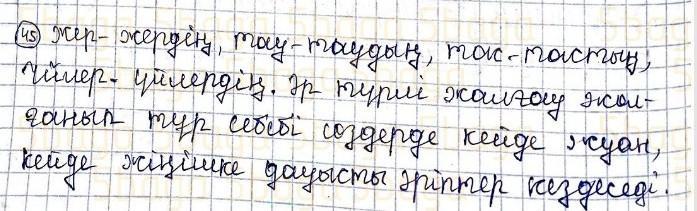 45 жер-жердің, тау-таудың, тас-тастың,
үйлер-үйлердің. Әр түрлі жалғау жал-
ғанып тұр себебі сөздерде кейде жуан,
кейде жіңішке дауысты әріптер кездеседі.